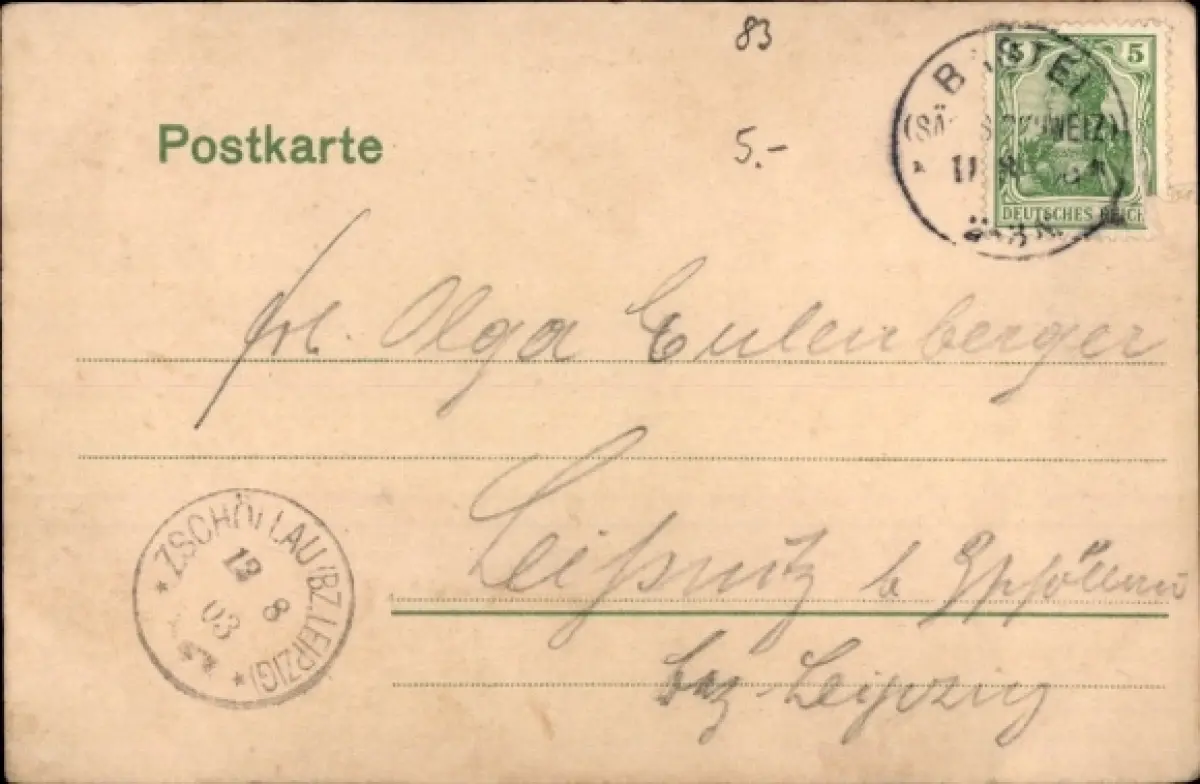 83
5.-
Postkarte
5 5
DEUTSCHES REICH
BASTEI
(SÄCHS SCHWEIZ)
Frl. Olga Eulenberger
b
Bez. Leipzig
* ZSCHÖLLAU (BZ. LEIPZIG) *
12
8
03